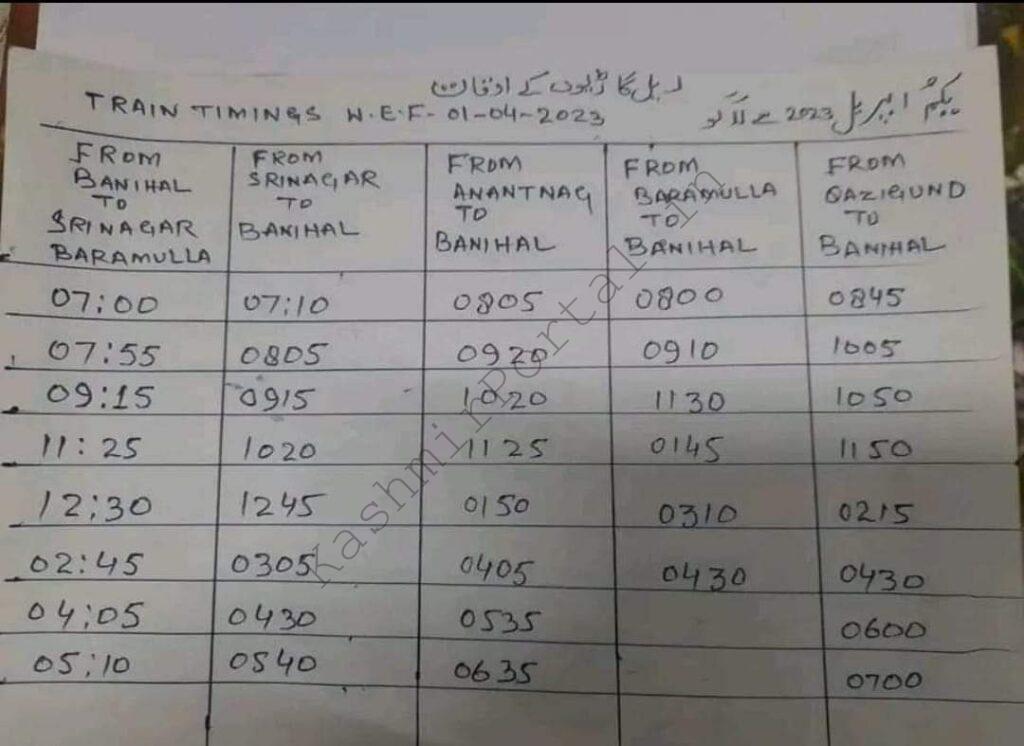 ریل گاڑیوں کے اوقات
TRAIN TIMINGS W.E.F- 01-04-2023 یکم اپریل 2023 سے لاگو
FROM BANIHAL TO SRINAGAR BARAMULLA | FROM SRINAGAR TO BANIHAL | FROM ANANTNAG TO BANIHAL | FROM BARAMULLA TO BANIHAL | FROM QAZIGUND TO BANIHAL
07:00 07:10 0805 0800 0845
07:55 0805 0920 0910 1005
09:15 0915 1020 1130 1050
11:25 1020 1125 0145 1150
12:30 1245 0150 0310 0215
02:45 0305 0405 0430 0430
04:05 0430 0535 0600
05:10 0540 0635 0700
Kashmir Portal In